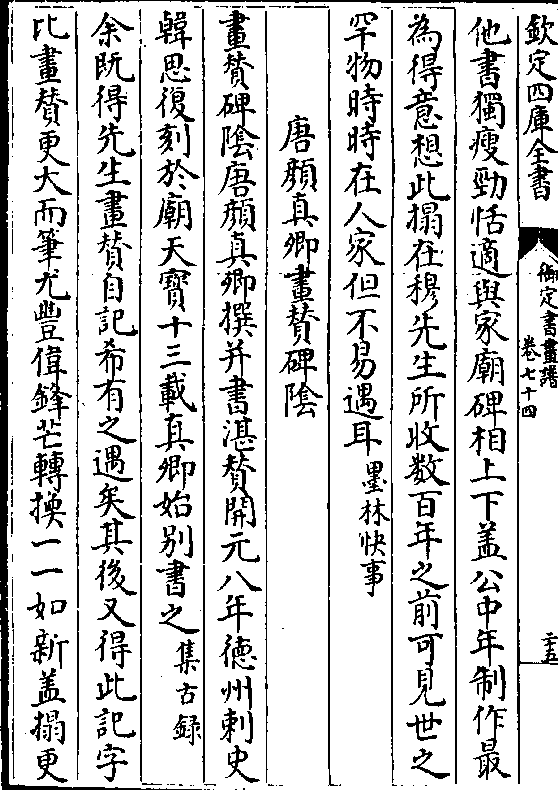 欽定四庫全書
御定書畫譜
卷七十四
二十五
他書獨瘦勁恬適與家廟碑相上下蓋公中年制作最
為得意想此搨在穆先生所收数百年之前可見世之
罕物時時在人家但不易遇耳墨林快事
唐顔真卿畫賛碑陰
畫賛碑陰唐顔真卿撰并書湛賛開元八年德州刺史
韓思復刻於廟天寳十三載真卿始别書之集古録
余既得先生畫賛自記希有之遇矣其後又得此記字
比畫賛更大而筆尤豐偉鋒芒轉換一一如新蓋搨更